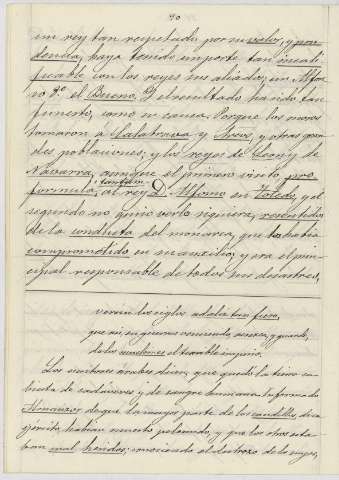 90
un rey tan respetado por su valor, y pru-
dencia, haya tenido un porte tan incali-
ficable con los reyes sus aliados, un Alfon-
so 8º el Bueno. Y el resultado ha sido tan
funesto, como su causa. Porque los moros
tomaron a Calatrava y Alarcos, y otras gran-
des poblaciones; y los reyes de Leon y de
Navarra, aunque el primero visitó pro
formula, tan solo al rey D. Alfonso en Toledo, y el
segundo no quiso verlo siquiera, resentidos
de la conducta del monarca, que los había
comprometido en su auxilio, y era el prin-
cipal responsable de todos sus desastres,
veran los siglos adalid tan fiero,
que así, en guerras venciendo, acrezca, y guarde,
de los muslimes el temible imperio.
Los escritores árabes dicen, que quedó la tierra cu-
bierta de cadáveres y de sangre humana. Informado
Almanzor de que la mayor parte de los caudillos de su
ejército, habían muerto peleando, y que los otros esta-
ban mal heridos; conociendo el destrozo de los suyos,